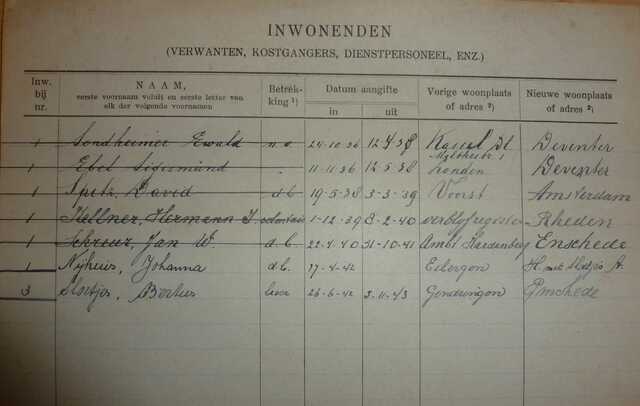 INWONENDEN
(VERWANTEN, KOSTGANGERS, DIENSTPERSONEEL, ENZ.)
Inw. bij nr. NAAM, eerste voornaam voluit en eerste letter van elk der volgende voornamen Betrekking ¹) Datum aangifte in uit Vorige woonplaats of adres ²) Nieuwe woonplaats of adres ²)
1 Sondheimer Ewald n.o 24-10-36 12 4 38 Kassel Dl Deventer
1 Ebel Sigismund 11-11-36 12-5-38 Deventer
1 Spetz David d.b. 19-5-38 3-3-39 Voorst Amsterdam
1 Kellner, Hermann J. volontair 1-12-39 8-2-40 verblijfregister Rheden
1 Schreur, Jan W. d.b. 22-4-40 31-10-41 Ambt Hardenberg Enschede
1 Nijhuis, Johanna d.b. 27-4-42
3 Slotjes, 26-6-42 3-11-43 Gendringen Enschede